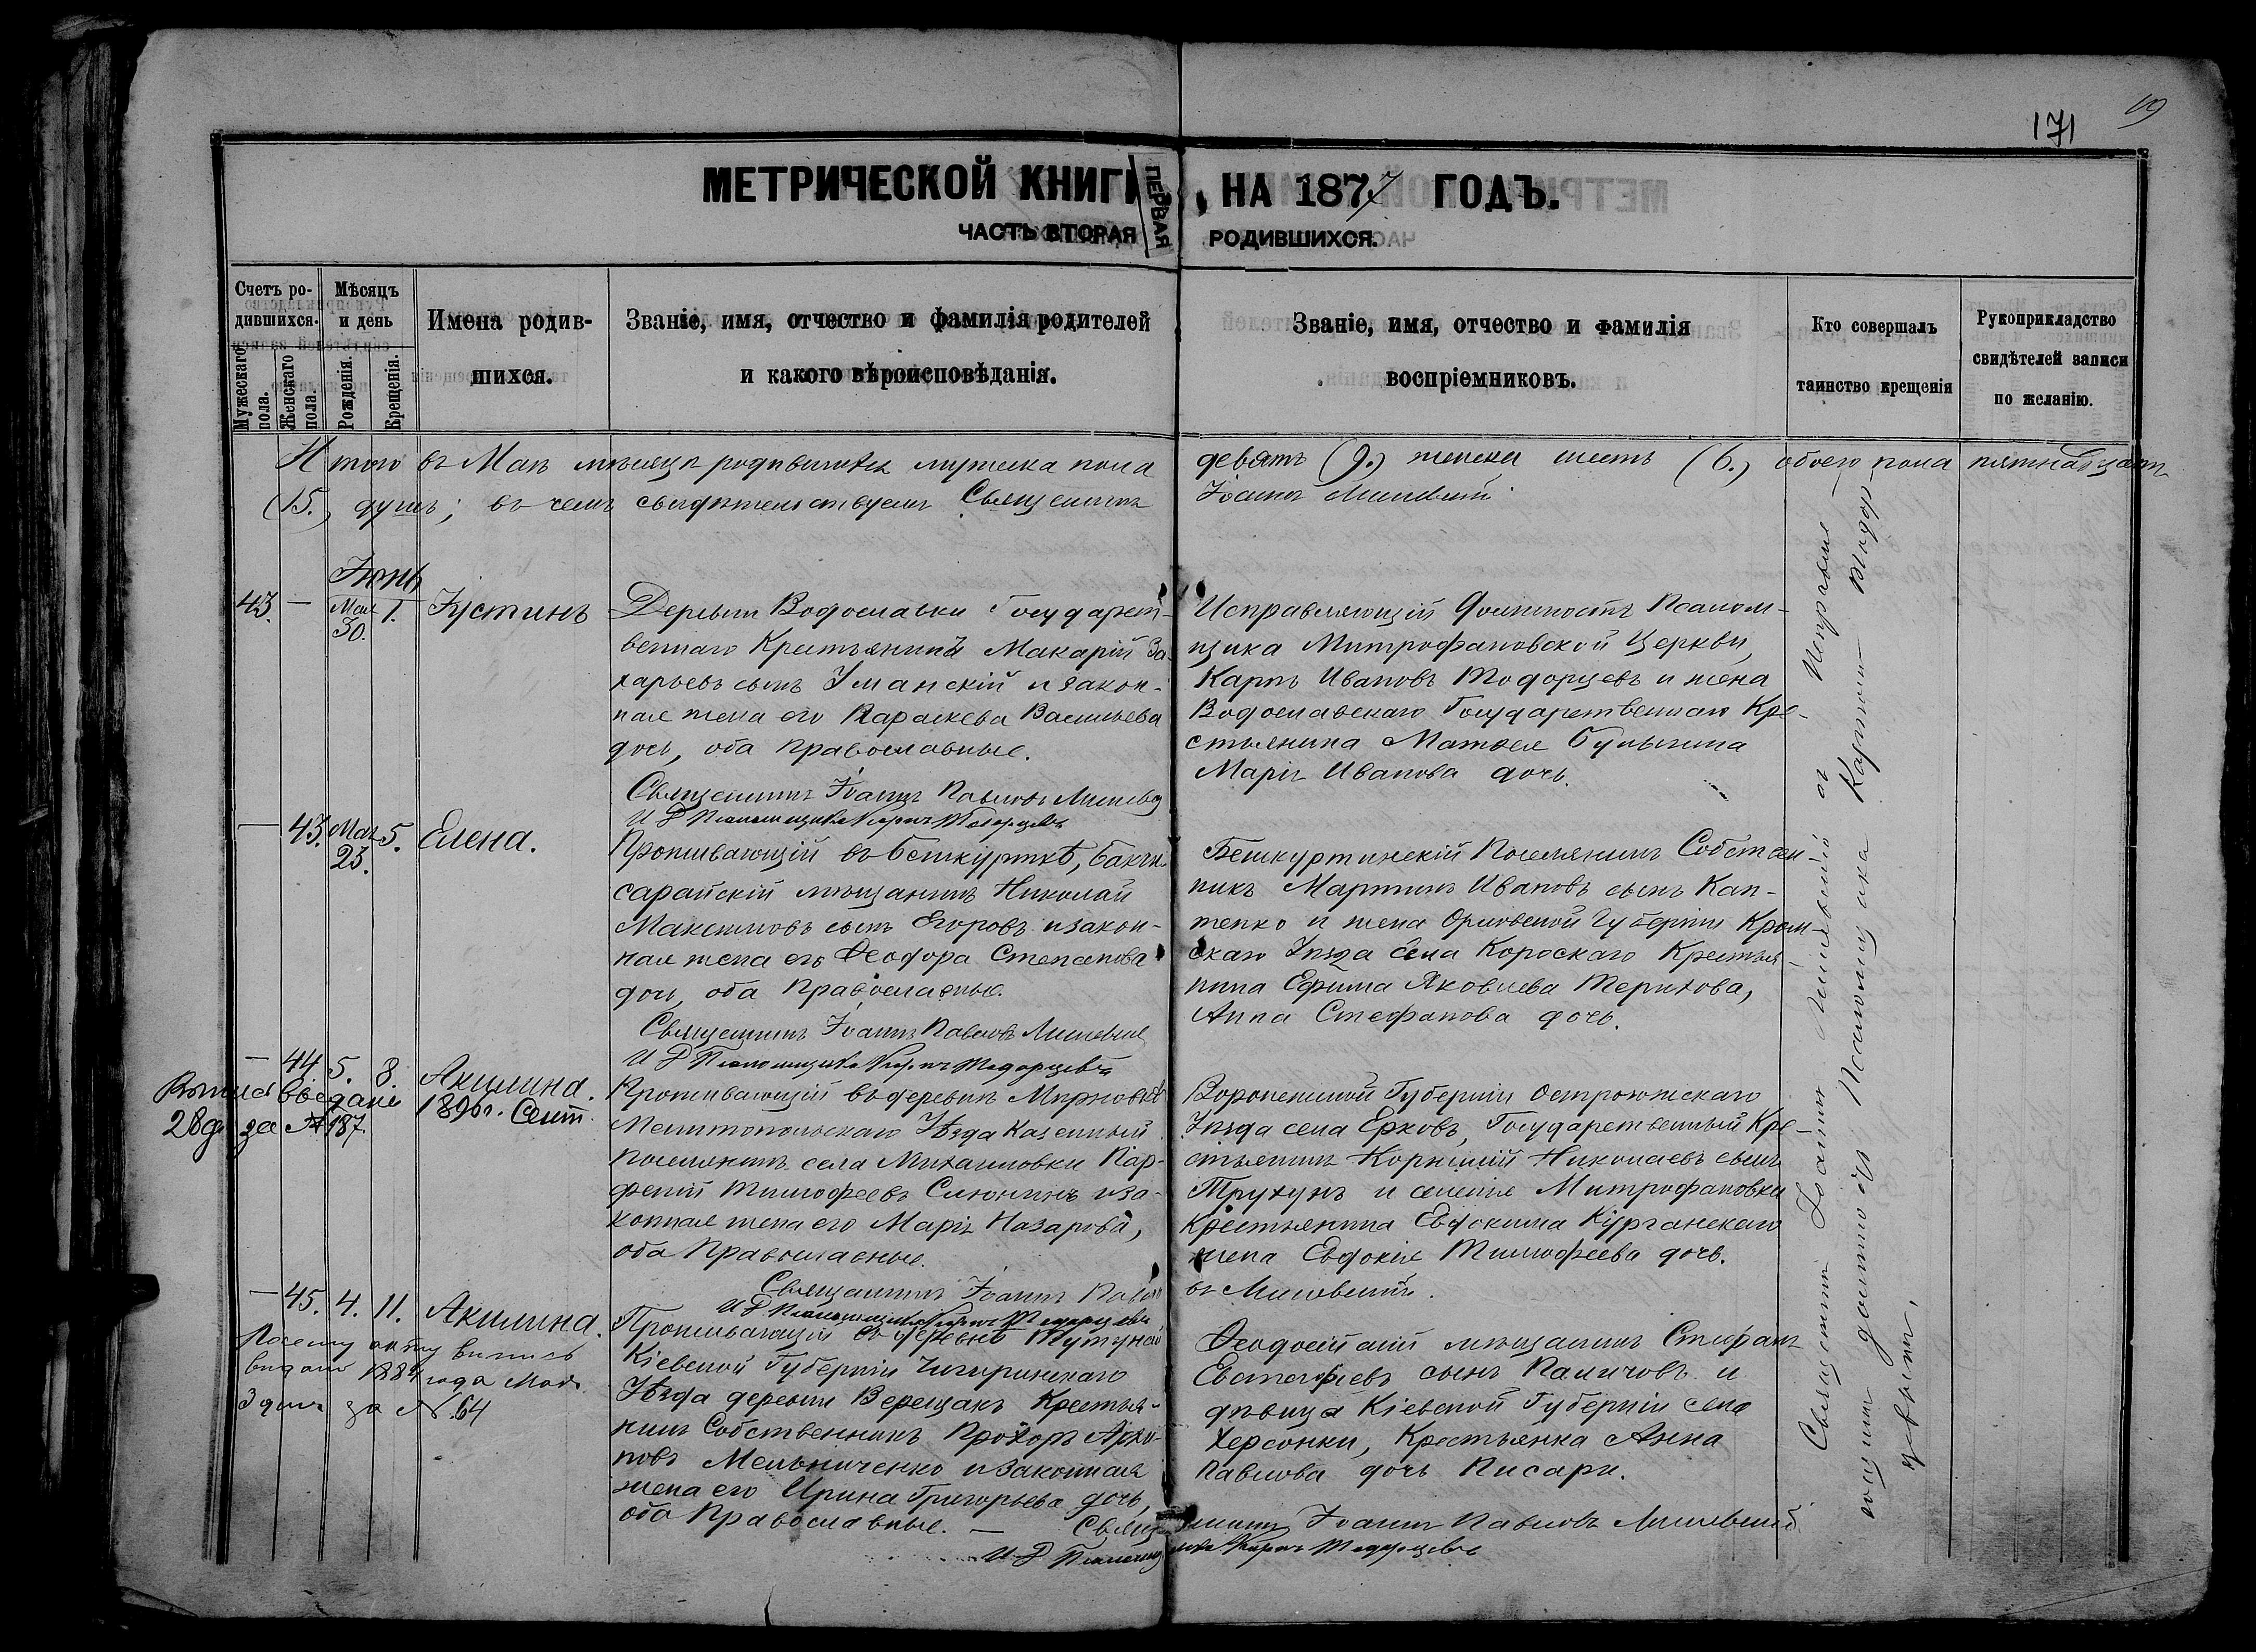 19
171
МЕТРИЧЕСКОЙ КНИГИ, НА 1877 ГОДЪ.
ЧАСТЬ ВТОРАЯ ПЕРВАЯ РОДИВШИХСЯ.
Счетъ родившихся.
Мужескаго пола.
Женскаго пола.
Мѣсяцъ и день
Рожденія.
Крещенія.
Имена родив-
шихся.
Званіе, имя, отчество и фамилія родителей
и какого вѣроисповѣданія.
Званіе, имя, отчество и фамилія
воспріемниковъ.
Кто совершалъ
таинство крещенія
Рукоприкладство
свидѣтелей записи
по желанію.
Итого въ Маѣ мѣсяцѣ родившихся мужеска пола девять (9.) женска шесть (6.) обоего пола пятнадцать
(15.) душъ; въ чемъ свидѣтельствуемъ Священникъ Іоаннъ
Іюнь
43. — Мая 30. 1. Іустинъ
Деревни Водославки Государст-
веннаго Крестьянинъ Макарій За-
харьевъ сынъ Уманскій и закон-
ная жена его Параскева Васильева
дочь, оба Православные.
Священникъ Іоаннъ Павловъ
И Д Псаломщика Карпъ Тодорцевъ
Исправляющій должность Псалом-
щика Митрофановской Церкви,
Карпъ Ивановъ Тодорцевъ и жена
Водославскаго Государственнаго Кре-
стьянина Матвея Булыгина
Марія Иванова дочь.
— 43. Мая 25. 5. Елена.
Проживающій въ Бешкурткѣ, Бакчи-
сарайскій мѣщанинъ Николай
Максимовъ сынъ Егоровъ и закон-
ная жена его Феодора Степанова
дочь, оба Православные.
Священникъ Іоаннъ Павловъ
И Д Псаломщика Карпъ Тодорцевъ
Бешкуртинскій Поселянинъ Собствен-
никъ Мартинъ Ивановъ сынъ Кап-
тенко и жена Орловской Губерніи Кром-
скаго Уѣзда села Короскаго Крестья-
нина Ефима Яковлева Терихова,
Анна Стефанова дочь.
— 44. 5. 8. Акилина.
Выпись выдана 1890г. Сент.
28 д. за № 187.
Проживающій въ деревнѣ Мирновкѣ
Мелитопольскаго Уѣзда Казенный
поселянинъ села Михайловки Пар-
феній Тимофеевъ Слюнинъ и за-
конная жена его Марія Назарова,
оба Православные.
Священникъ Іоаннъ Павловъ
И Д Псаломщика Карпъ Тодорцевъ
Воронежской Губерніи Острожскаго
Уѣзда села Ерковъ, Государственный Кре-
стьянинъ Корнилій Николаевъ сынъ
Трухунъ и селенія Митрофановки
Крестьянина Евдокима Курганскаго
жена Евдокія Тимофеева дочь.
— 45. 4. 11. Акилина.
Посему акту выпись
выдана 1884 года
3 дня за № 64
Проживающій въ деревнѣ
Кіевской Губерніи Чигиринскаго
Уѣзда деревни Верещакъ Крестья-
нинъ Собственникъ Прохоръ Архи-
повъ Мельниченко и законная
жена его Ирина Григорьева дочь,
оба Православные. — Священникъ Іоаннъ Павловъ
И Д Псаломщика Карпъ Тодорцевъ
Феодосійскій мѣщанинъ Стефанъ
Евстафіевъ сынъ Паличовъ и
дѣвица Кіевской Губерніи села
Херсонки, Крестьянка Анна
Павлова дочь Писари.
Священникъ Іоаннъ
съ Исправляющимъ должность Псаломщика Карпомъ Тодорцевымъ.